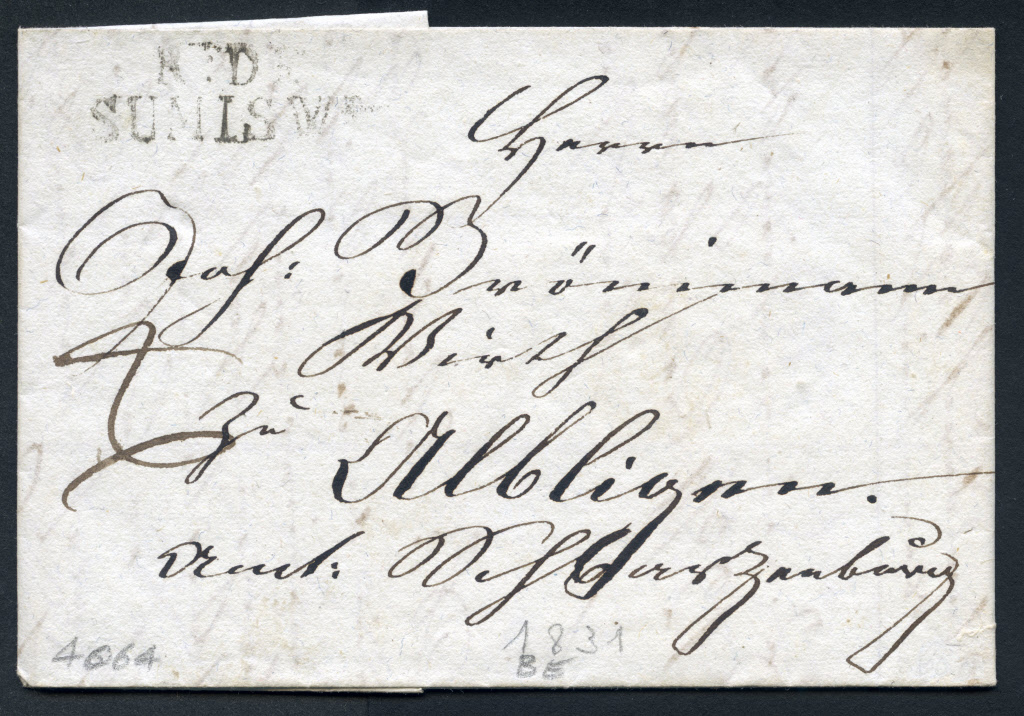 SUMISW
Herrn
Joh: Brönimann
Wirth
zu
Albligen.
Amt: Schwarzenburg
4
4064
1831
BE